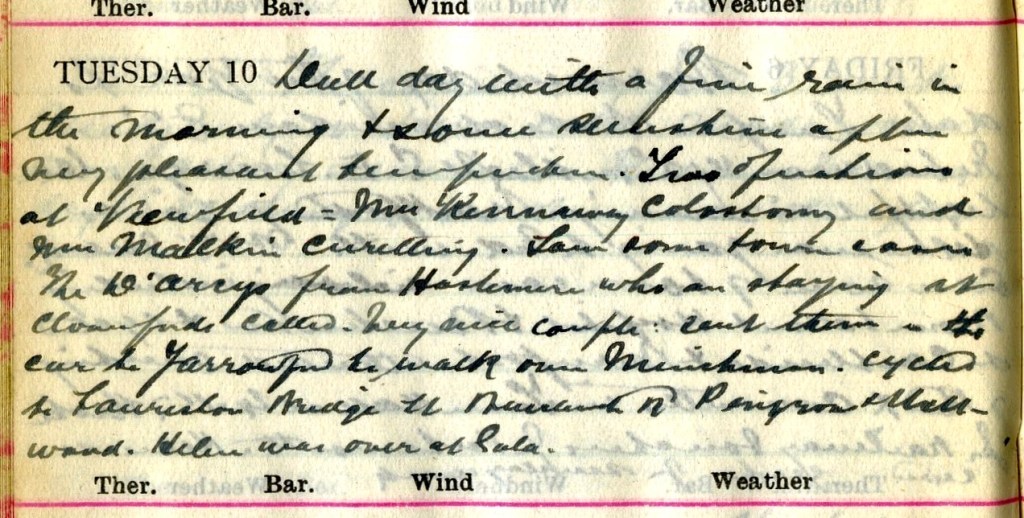 Ther. Bar. Wind Weather
TUESDAY 10 Dull day with a fine rain in
the morning & some sunshine after
very pleasant temperature. Two operations
at Viewfield = Mrs Kennaway Colostomy and
Mrs Malkin curetting. Saw some town cases
The D'Arcys from Haslemere who are staying at
called. Very nice couple: sent them in the
car to Yarrowford to walk over Minchmoor. Cycled
to Lauriston Bridge
wood. Helen was over at Gala.
Ther. Bar. Wind Weather